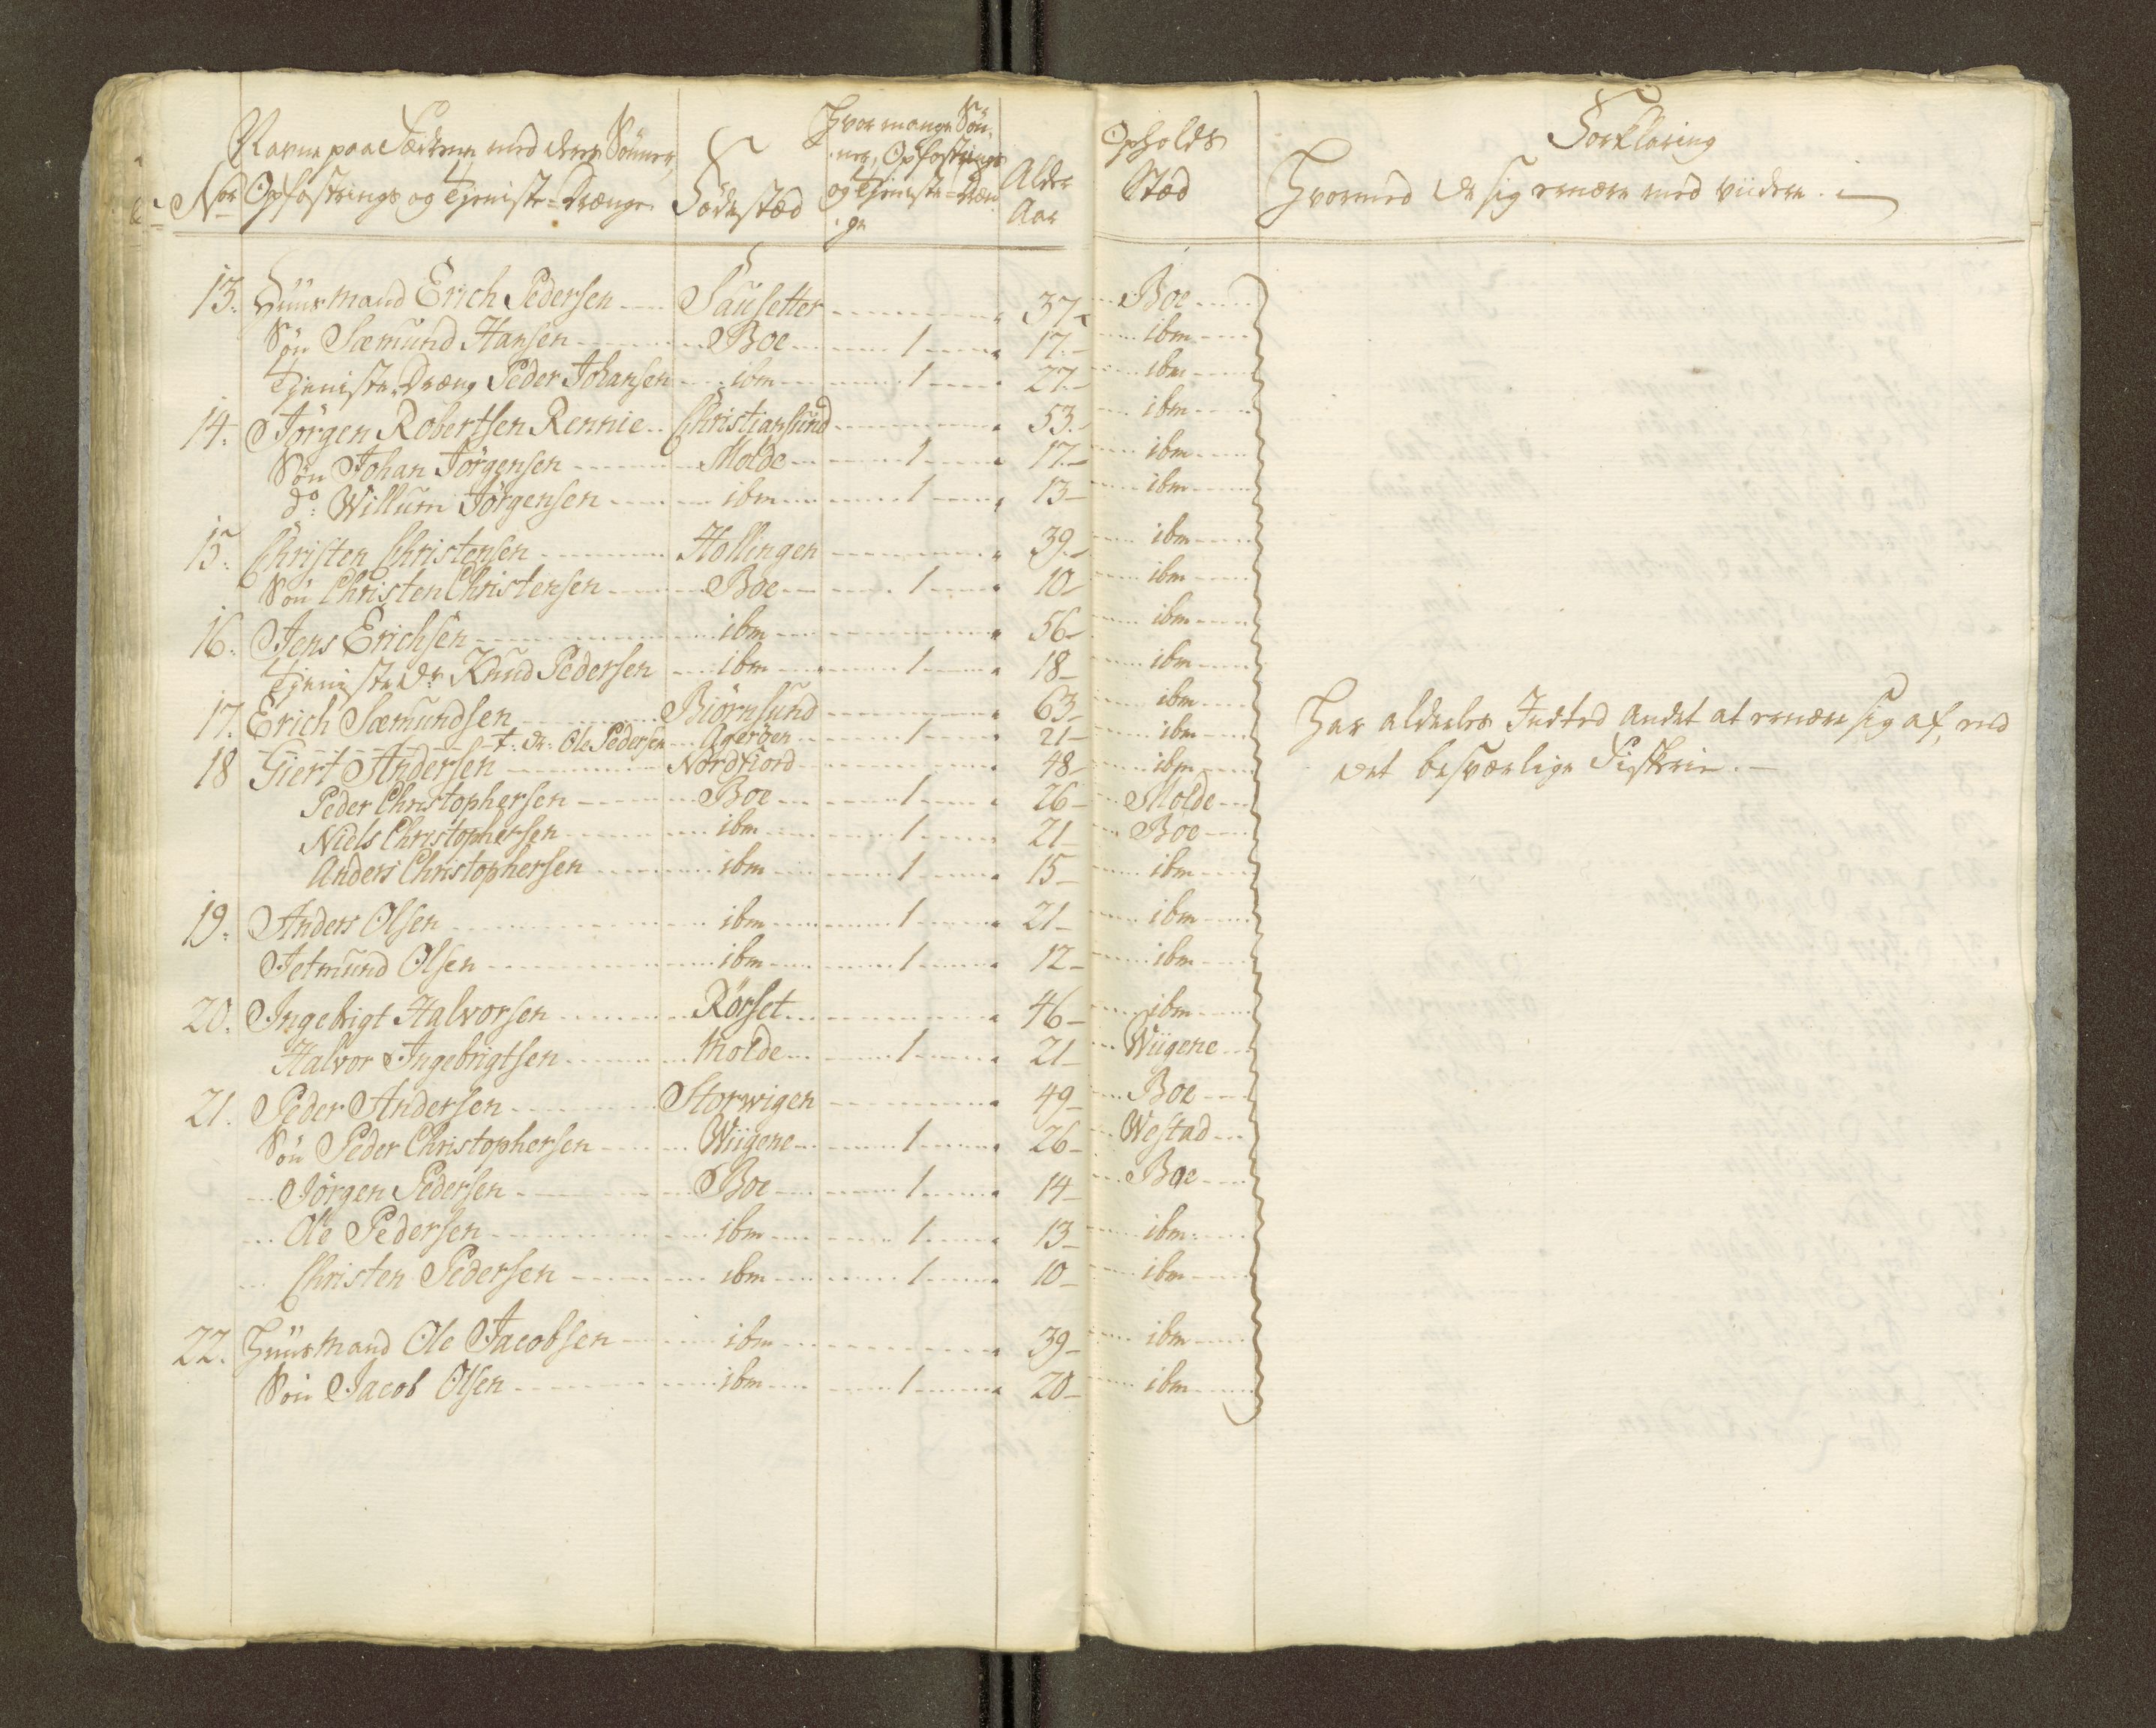 Navne paa Fædrene med deres Sönner, Opfostrings og Tjeniste-Drænge
Nor
Födestæd
Hvor mange Sön-
ner, Opfostrings
og Tjeniste-Dræn
ge
Alder
Aar
Opholds
Stæd
Forklaring
Hvormed de sig ernære med viidere
13. Huusmand Erich Pedersen Sausetter 37 Boe
Sön Sæmund Hansen Boe 1 17 ibm
Tjeniste Dræng Peder Johansen ibm 1 27 ibm
14. Jörgen Robertsen Rennie Christiansund 53 ibm
Sön Johan Jörgensen Molde 1 17 ibm
do Willum Jörgensen ibm 1 13 ibm
15. Christen Christensen Hollingen 39 ibm
Sön Christen Christensen Boe 1 10 ibm
16. Jens Erichsen ibm 56 ibm
Tjeniste Dr Knud Pedersen ibm 1 18 ibm
17. Erich Sæmundsen Biörnsund 63 ibm
T: Dr: Ole Pedersen Ageröen 1 21 ibm
18 Giert Andersen Nordfiord 48 ibm
Peder Christophersen Boe 1 26 Molde
Niels Christophersen ibm 1 21 Boe
Anders Christophersen ibm 1 15 ibm
19. Anders Olsen ibm 1 21 ibm
Jetmund Olsen ibm 1 12 ibm
20. Ingebrigt Halvorsen Rörset 46 ibm
Halvor Ingebrigtsen Molde 1 21 Wiigene
21. Peder Andersen Storwigen 49 Boe
Sön Peder Christophersen Wiigene 1 26 Westad
Jörgen Pedersen Boe 1 14 Boe
Ole Pedersen ibm 1 13 ibm
Christen Pedersen ibm 1 10 ibm
22. Huusmand Ole Jacobsen ibm 39 ibm
Sön Jacob Olsen ibm 1 20 ibm
Har aldeeles Indted andet at ernære sig af, end
det besværlige Fiskerie.